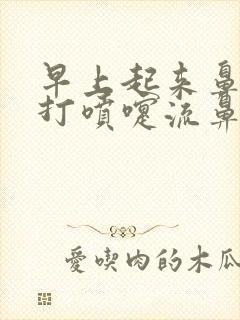 早上起来鼻
打噴嚏流鼻
愛喫肉的木瓜